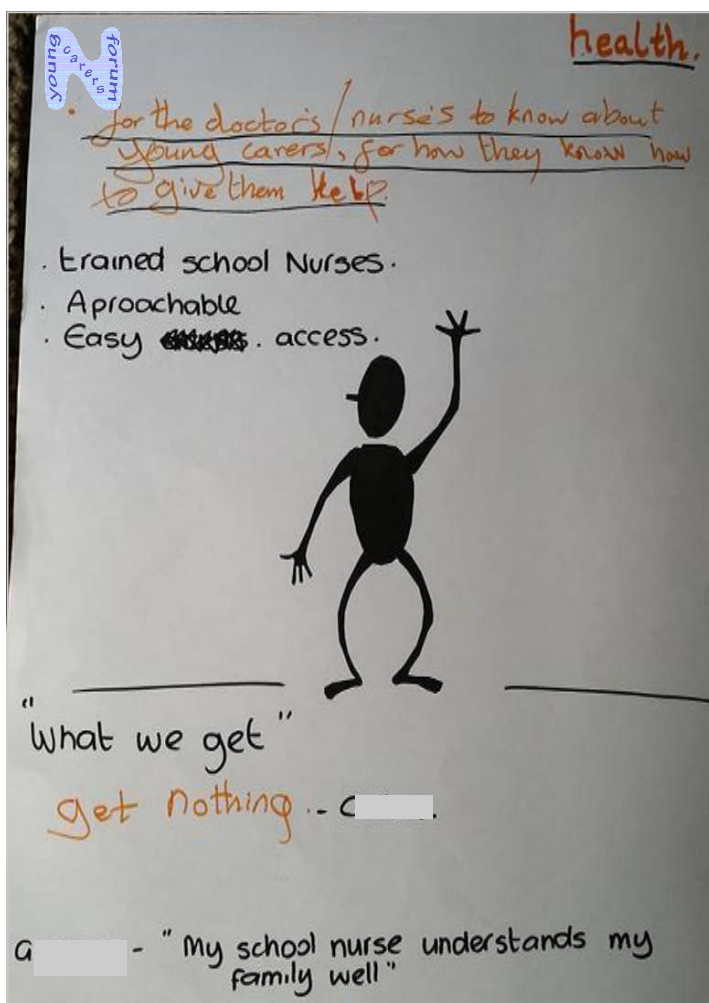 young carers forum
health.
. for the doctor's / nurse's to know about
young carers, for how they know how
to give them Help.
. trained school Nurses.
. Aproachable
. Easy . access.
"What we get"
get nothing. - C
G - "My school nurse understands my
family well"